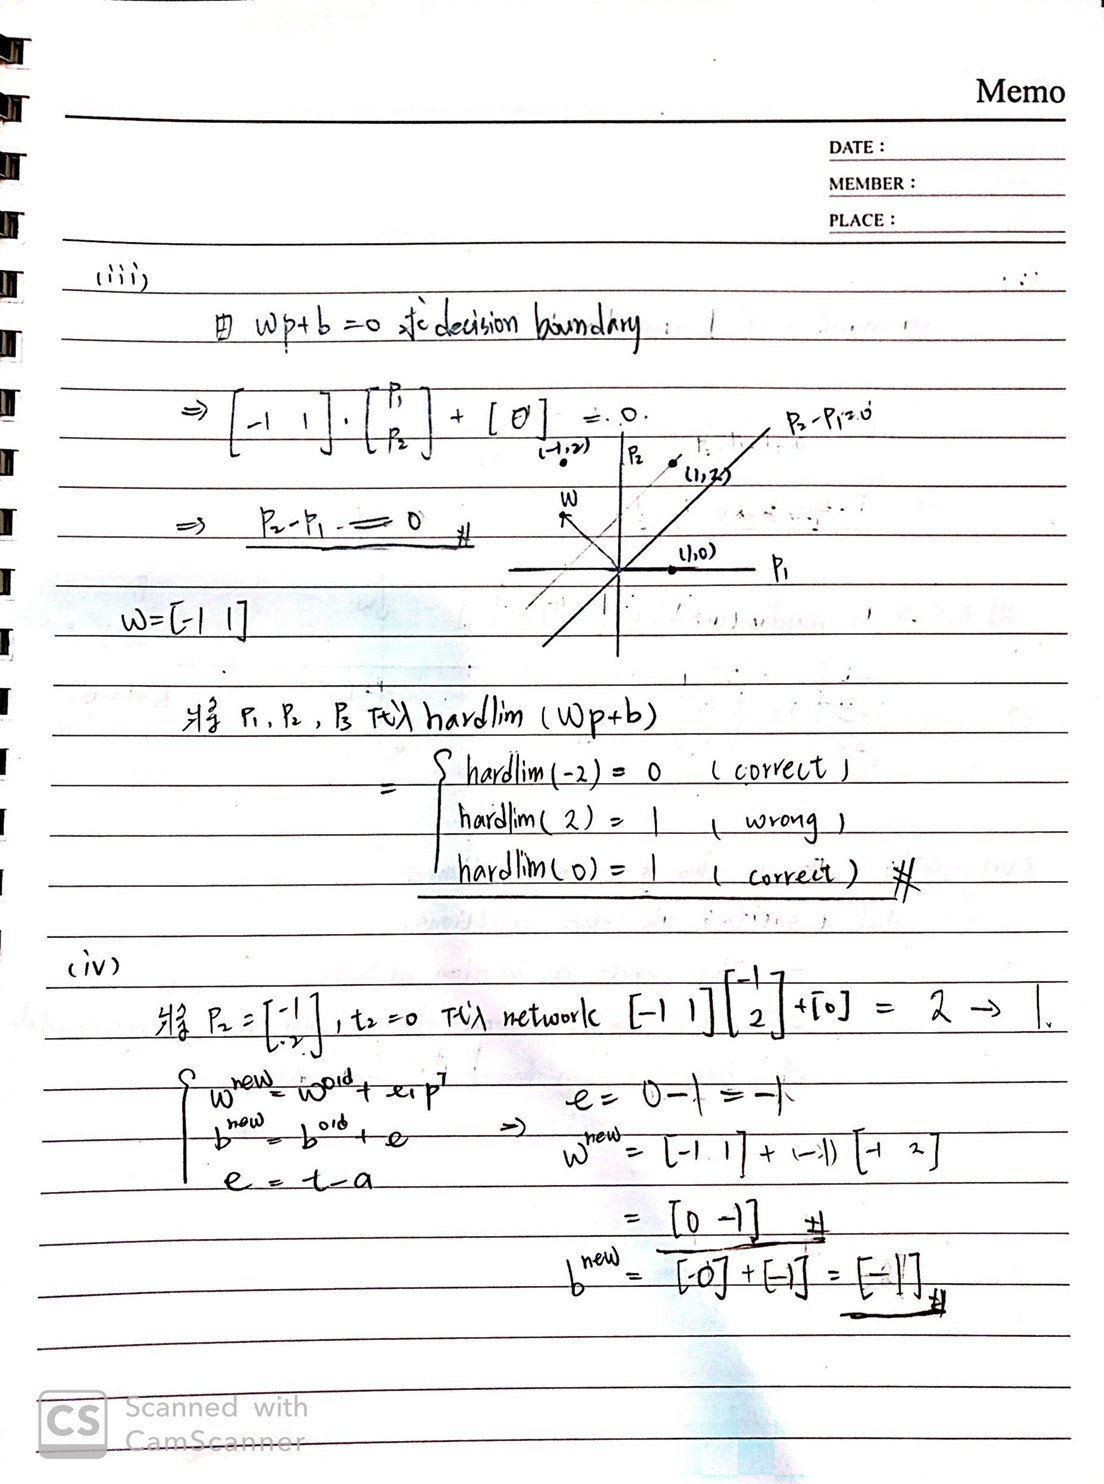 Memo
DATE :
MEMBER :
PLACE :
(iii)
由 Wp+b=0 求 decision boundary
⇒ [-1 1]·[P₁ P₂] + [0] = 0.
(-1,2)
P₂
(1,2)
P₂-P₁=0
W
(1,0)
P₁
⇒ P₂-P₁ = 0 #
W=[-1 1]
將 P₁, P₂, P₃ 代入 hardlim (Wp+b)
= { hardlim(-2) = 0 (correct)
hardlim(2) = 1 (wrong)
hardlim(0) = 1 (correct) #
(iv)
將 P₂=[-1 2], t₂=0 代入 network [-1 1][-1 2]+[0] = 2 → 1.
{ W^new = W^old + e·p^T
b^new = b^old + e
e = t-a
⇒ e = 0-1 = -1
W^new = [-1 1] + (-1)[-1 2]
= [0 -1] #
b^new = [0] + [-1] = [-1] #
CS
Scanned with
CamScanner